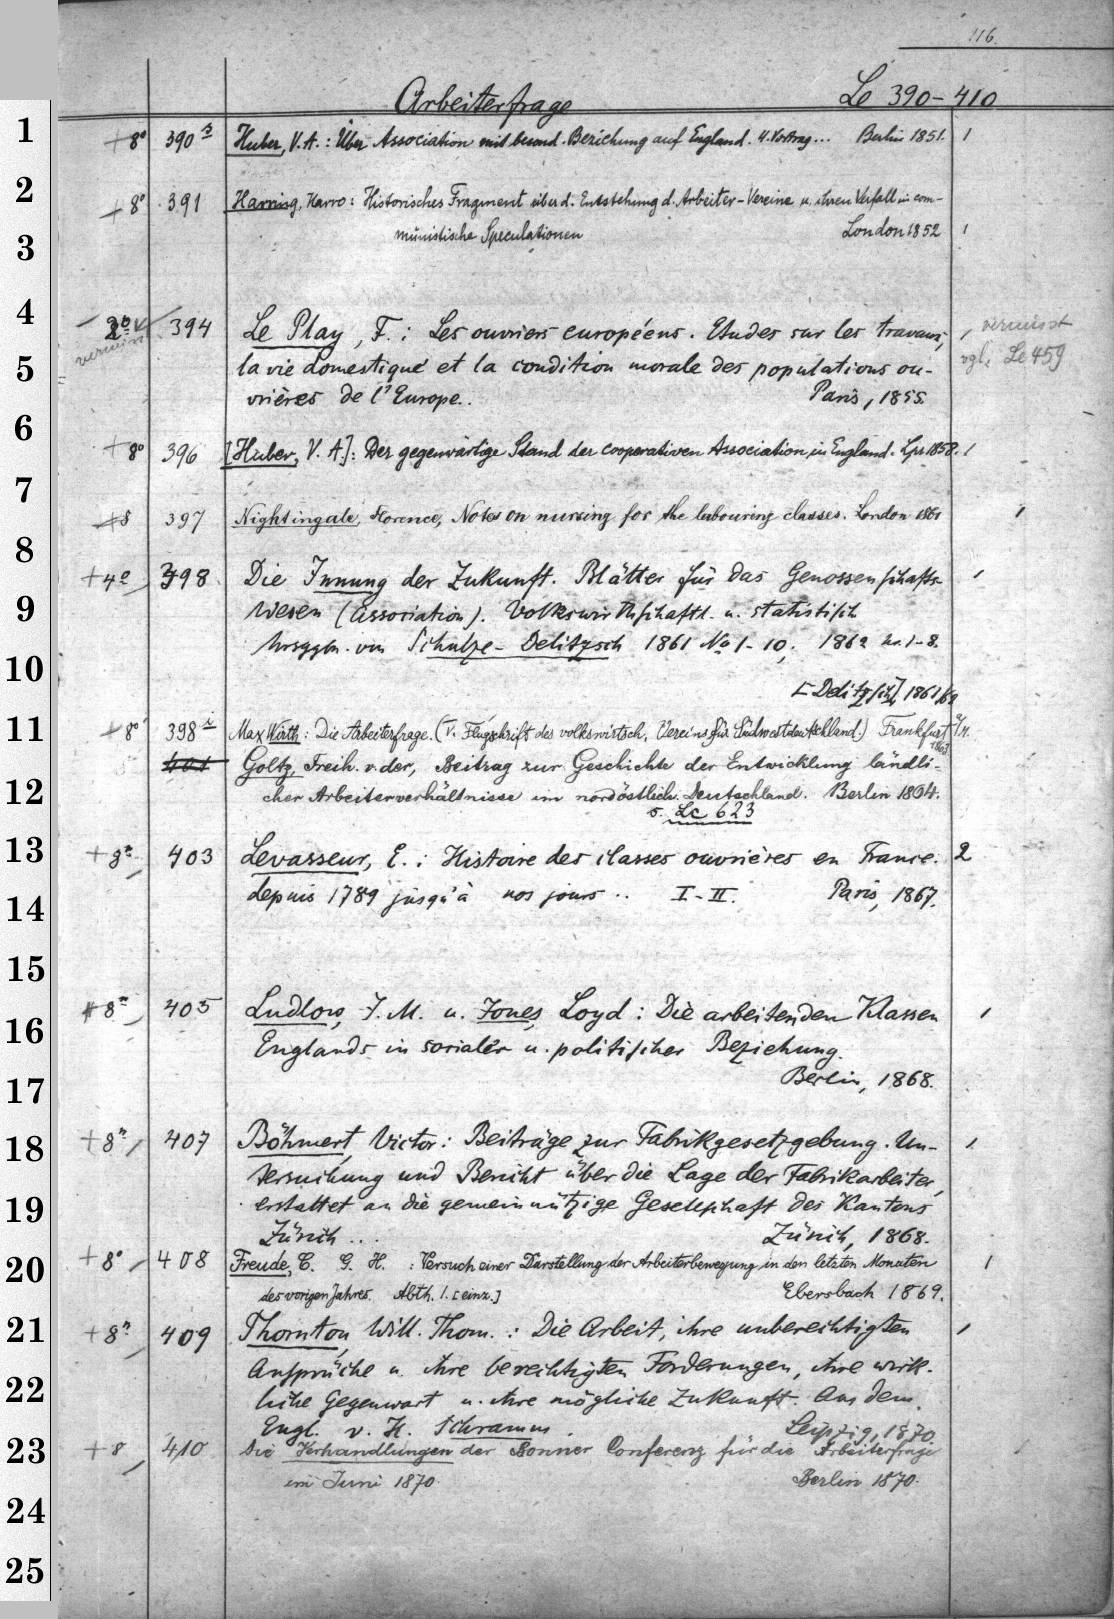 116.
Arbeiterfrage Le 390-410
+8° 390 Huber, V. A.: Über Association mit besond. Beziehung auf England. 4. Vortrag... Berlin 1851. 1
+8° 391 Harring, Harro: Historisches Fragment über d. Entstehung d. Arbeiter-Vereine u. ihren Verfall in com-
munistische Speculationen London 1852 1
394 Le Play, F.: Les ouvriers européens. Etudes sur les travaux, 1 vermisst
vermisst la vie domestique et la condition morale des populations ou- vgl. Le 459
vrières de l'Europe.. Paris, 1855.
+8° 396 [Huber, V. A.]: Der gegenwärtige Stand der cooperativen Association in England. Lpz. 1858. 1
+8 397 Nightingale, Florence, Notes on nursing for the labouring classes. London 1861 1
+4° 398 Die Innung der Zukunft. Blätter für das Genossenschafts-
wesen (Association). Volkswirthschaftl. u. statistisch
hrsggbn. von Schulze-Delitzsch 1861 No 1-10, 1862 No. 1-8.
[Delitzsch], 1861/62
+8° 398 Max Wirth: Die Arbeiterfrage. (V. Flugschrift des volkswirtsch. Vereins für Südwestdeutschland.) Frankfurt a/M.
1863
401 Goltz, Freih. v. der, Beitrag zur Geschichte der Entwicklung ländli-
cher Arbeiterverhältnisse im nordöstlich. Deutschland. Berlin 1864.
s. Lc 623
+8° 403 Levasseur, E.: Histoire des classes ouvrières en France. 2
depuis 1789 jusqu'à nos jours .. I-II. Paris, 1867.
+8° 405 Ludlow, J. M. u. Jones, Loyd: Die arbeitenden Klassen 1
Englands in socialer u. politischer Beziehung.
Berlin, 1868.
+8° 407 Böhmert, Victor: Beiträge zur Fabrikgesetzgebung. Un- 1
tersuchung und Bericht über die Lage der Fabrikarbeiter,
erstattet an die gemeinnützige Gesellschaft des Kantons
Zürich ... Zürich, 1868.
+8° 408 Freude, C. G. H.: Versuch einer Darstellung der Arbeiterbewegung in den letzten Monaten 1
des vorigen Jahres. Abth. 1. [einz.] Ebersbach 1869.
+8° 409 Thornton, Will. Thom.: Die Arbeit, ihre unberechtigten 1
Ansprüche u. ihre berechtigten Forderungen, ihre wirk-
liche Gegenwart u. ihre mögliche Zukunft. Aus dem
Engl. v. H. Schramm. Leipzig, 1870
+8 410 Die Verhandlungen der Bonner Conferenz für die Arbeiterfrage 1
im Juni 1870 Berlin 1870.
1
2
3
4
5
6
7
8
9
10
11
12
13
14
15
16
17
18
19
20
21
22
23
24
25